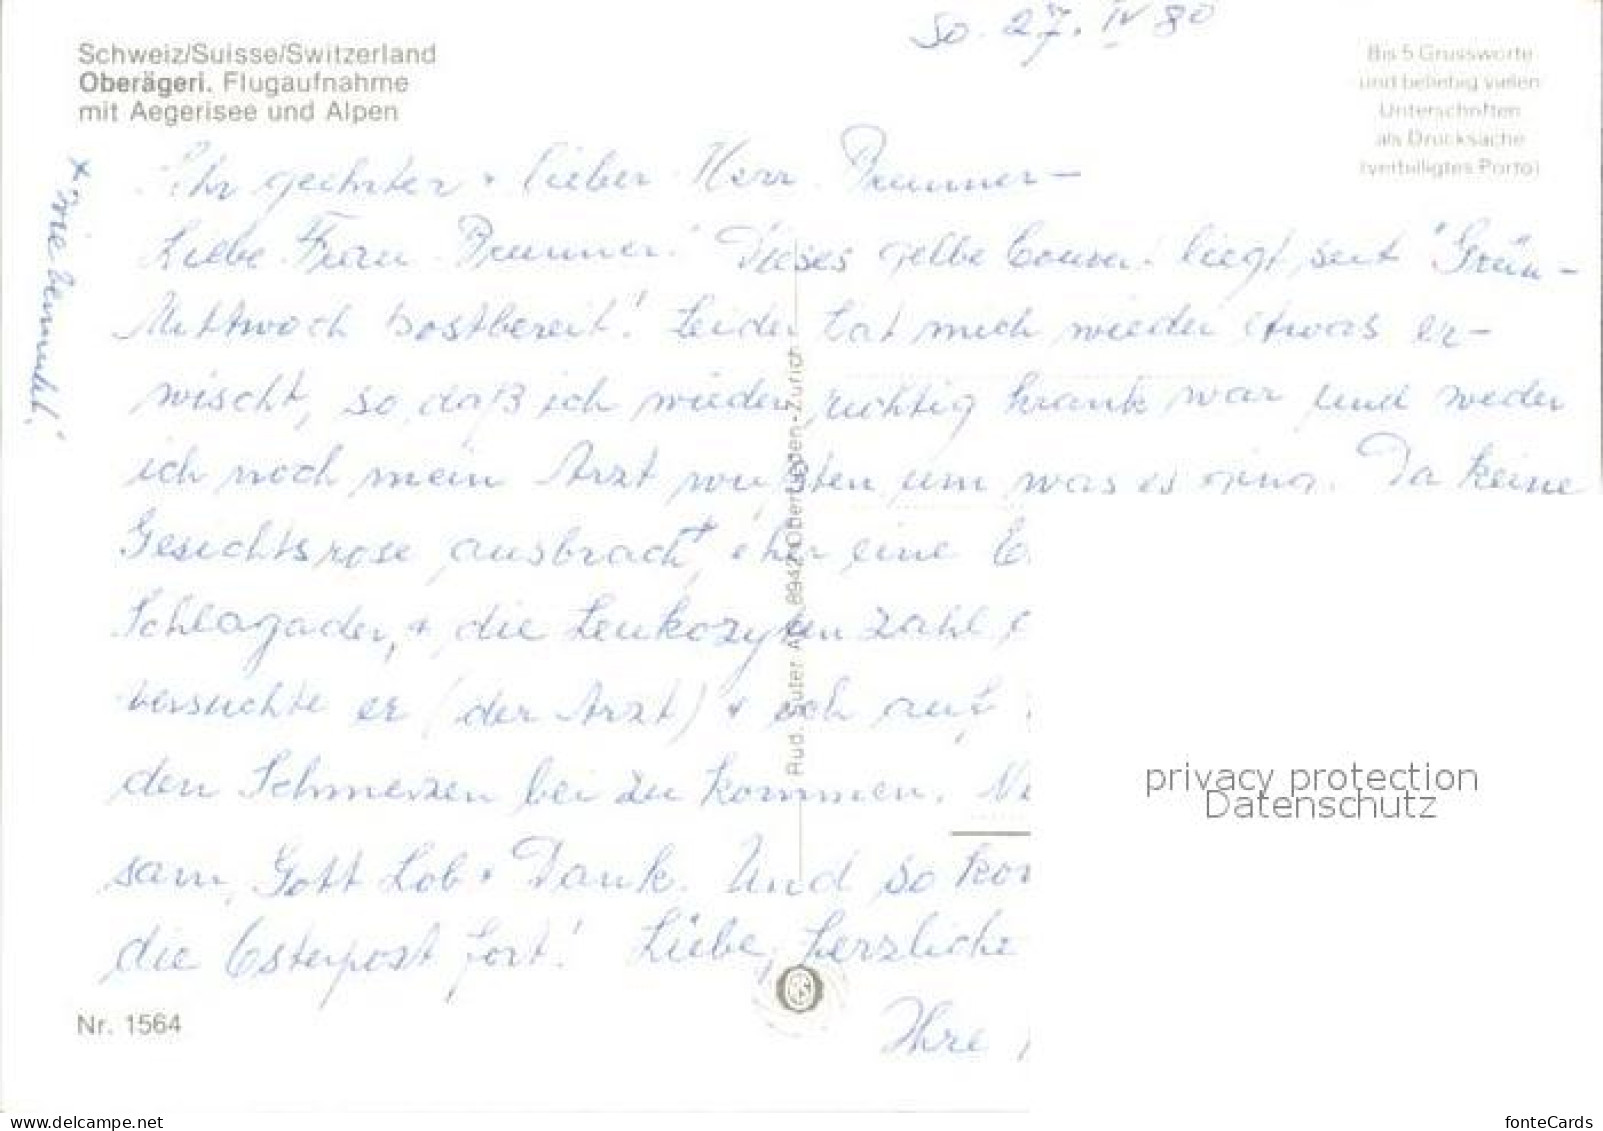 So. 27. IV 80
Schweiz/Suisse/Switzerland
Oberägeri. Flugaufnahme
mit Aegerisee und Alpen
Bis 5 Grussworte
und beliebig vielen
Unterschriften
als Drucksache
(verbilligtes Porto)
geehrter + lieber Herr Brunner –
Liebe Frau Brunner! Dieses gelbe Couvert liegt seit "Grün-
Mittwoch postbereit! Leider hat mich wieder etwas er-
wischt, so daß ich wieder richtig krank war und weder
ich noch mein Arzt wußten um was es ging. Da keine
Gesichtsrose ausbrach+ eher eine E
Schlagader, + die Leukozyten zahl
versuchte er (der Arzt) + ich auf
den Schmerzen bei zu kommen.
sam, Gott Lob + Dank. Und so kom
die Osterpost fort! Liebe, herzliche
Ihre
Rud. Suter AG, 8942 Oberrieden-Zürich
Nr. 1564
privacy protection
Datenschutz
https://www.delcampe.net
fonteCards